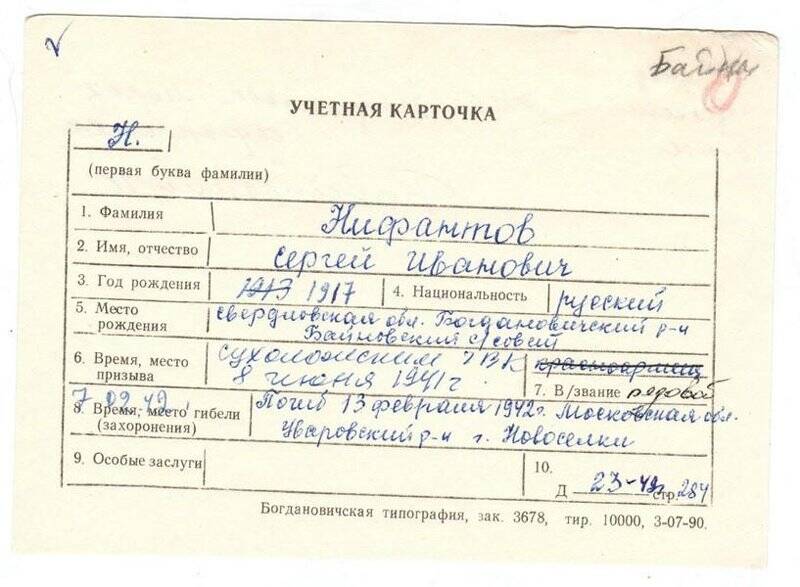 Байны
УЧЕТНАЯ КАРТОЧКА
Н.
(первая буква фамилии)
1. Фамилия Нифантов
2. Имя, отчество Сергей Иванович
3. Год рождения 1913 1917 4. Национальность русский
5. Место рождения Свердловская обл. Богдановичский р-н
Байновский с/совет
6. Время, место призыва Сухоложским РВК красноармеец
8 июня 1941г. 7. В/звание рядовой
7 09 49.
8. Время, место гибели (захоронения) Погиб 13 февраля 1942г. Московская обл.
Уваровский р-н г. Новоселки
9. Особые заслуги
10.
Д 23-49г стр. 284
Богдановичская типография, зак. 3678, тир. 10000, 3-07-90.